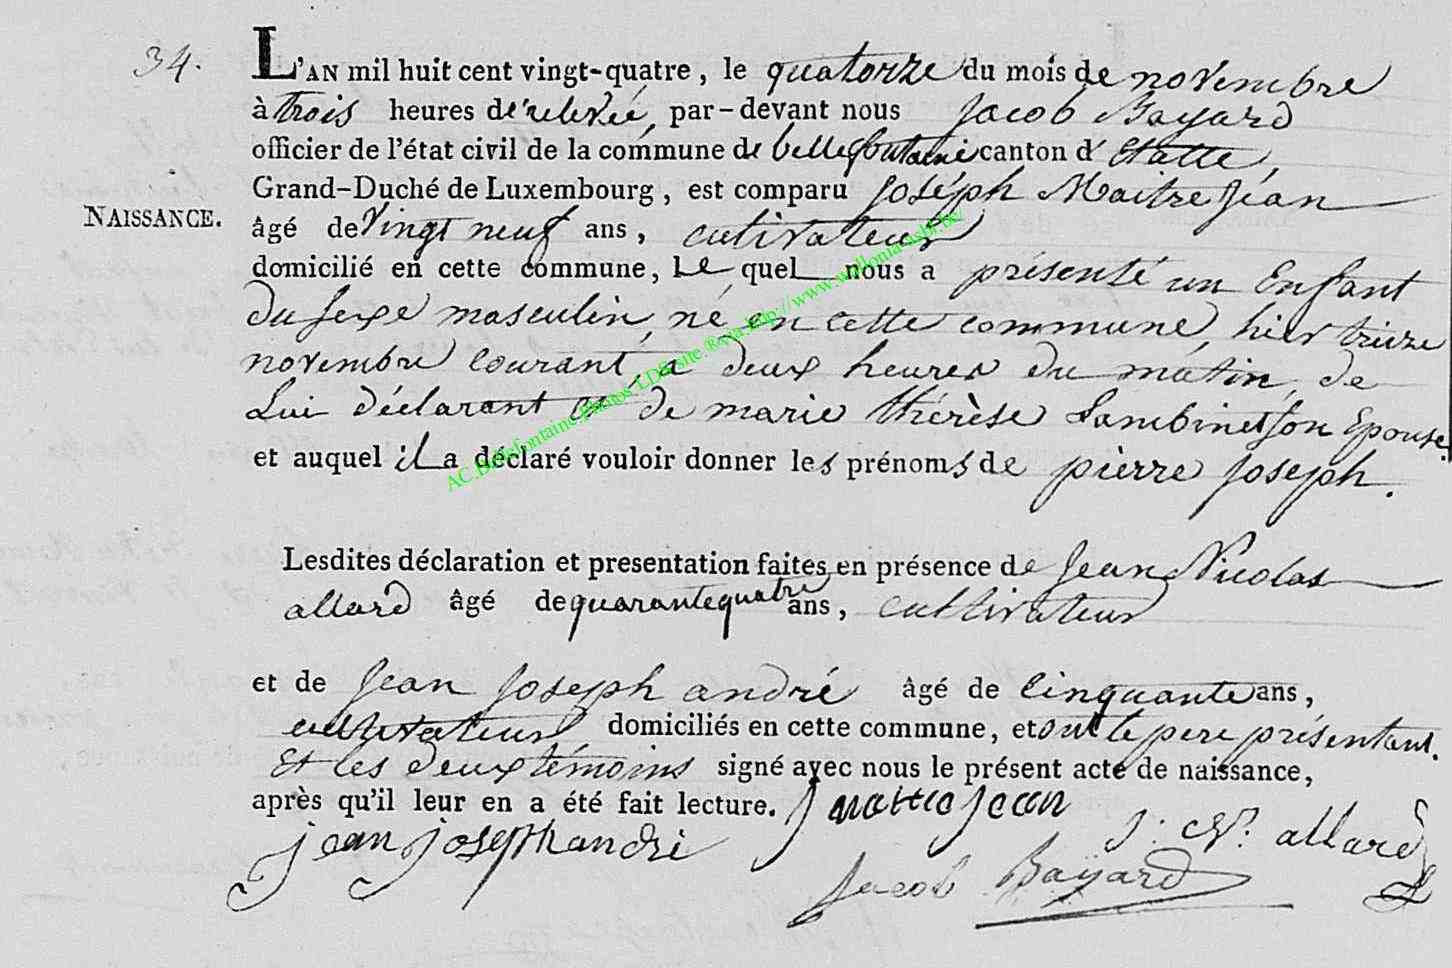 34.
L'AN mil huit cent vingt-quatre, le quatorze du mois de novembre
à trois heures de relevée, par-devant nous Jacob Bayard
officier de l'état civil de la commune de bellefontaine canton d'Etalle,
Grand-Duché de Luxembourg, est comparu Joséph Maitrejean
NAISSANCE.
âgé de vingt neuf ans, cultivateur
domicilié en cette commune, Le quel nous a présenté un Enfant
du sexe masculin, né en cette commune, hier treize
novembre courant, a deux heures du matin, de
Lui déclarant et de marie thérèse Lambinet son Epouse.
et auquel iL a déclaré vouloir donner les prénoms de pierre Joseph.
AC.Bellefontaine.Photos LDS site.®Asta.http://www.wallonia-asbl.be/
Lesdites déclaration et presentation faites en présence de Jean Nicolas
allard âgé de quarante quatre ans, cultivateur
et de Jean Joseph andré âgé de cinquante ans,
cultivateur domiciliés en cette commune, et ont le pere présentant.
Et les deux témoins signé avec nous le présent acte de naissance,
après qu'il leur en a été fait lecture. J maitrejean
jean joseph andre J: N. allard
Jacob Bayard